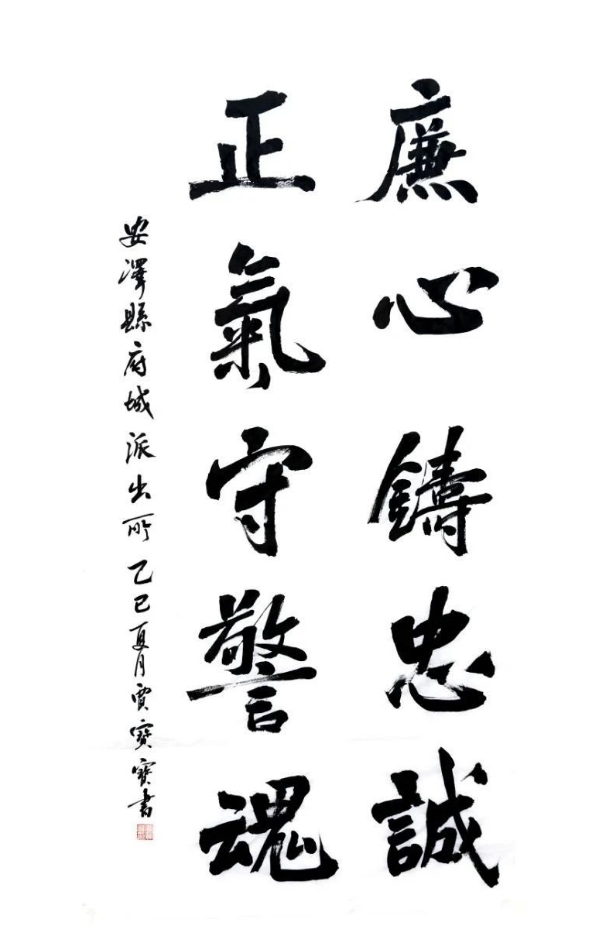 廉心鑄忠誠
正氣守警魂
安澤縣府城派出所乙巳夏月賈寶寶書